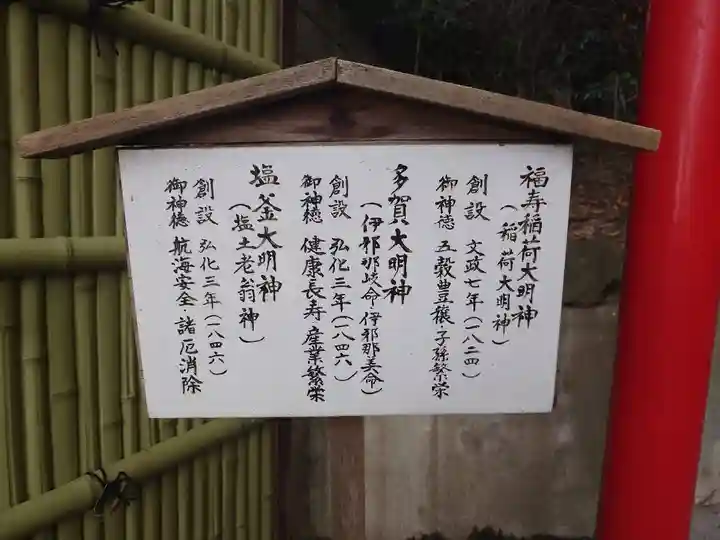 福寿稲荷大明神
(稲荷大明神)
創設 文政七年(一八二四)
御神徳 五穀豊穣・子孫繁栄
多賀大明神
(伊邪那岐命・伊邪那美命)
創設 弘化三年(一八四六)
御神徳 健康長寿 産業繁栄
塩釜大明神
(塩土老翁神)
創設 弘化三年(一八四六)
御神徳 航海安全・諸厄消除